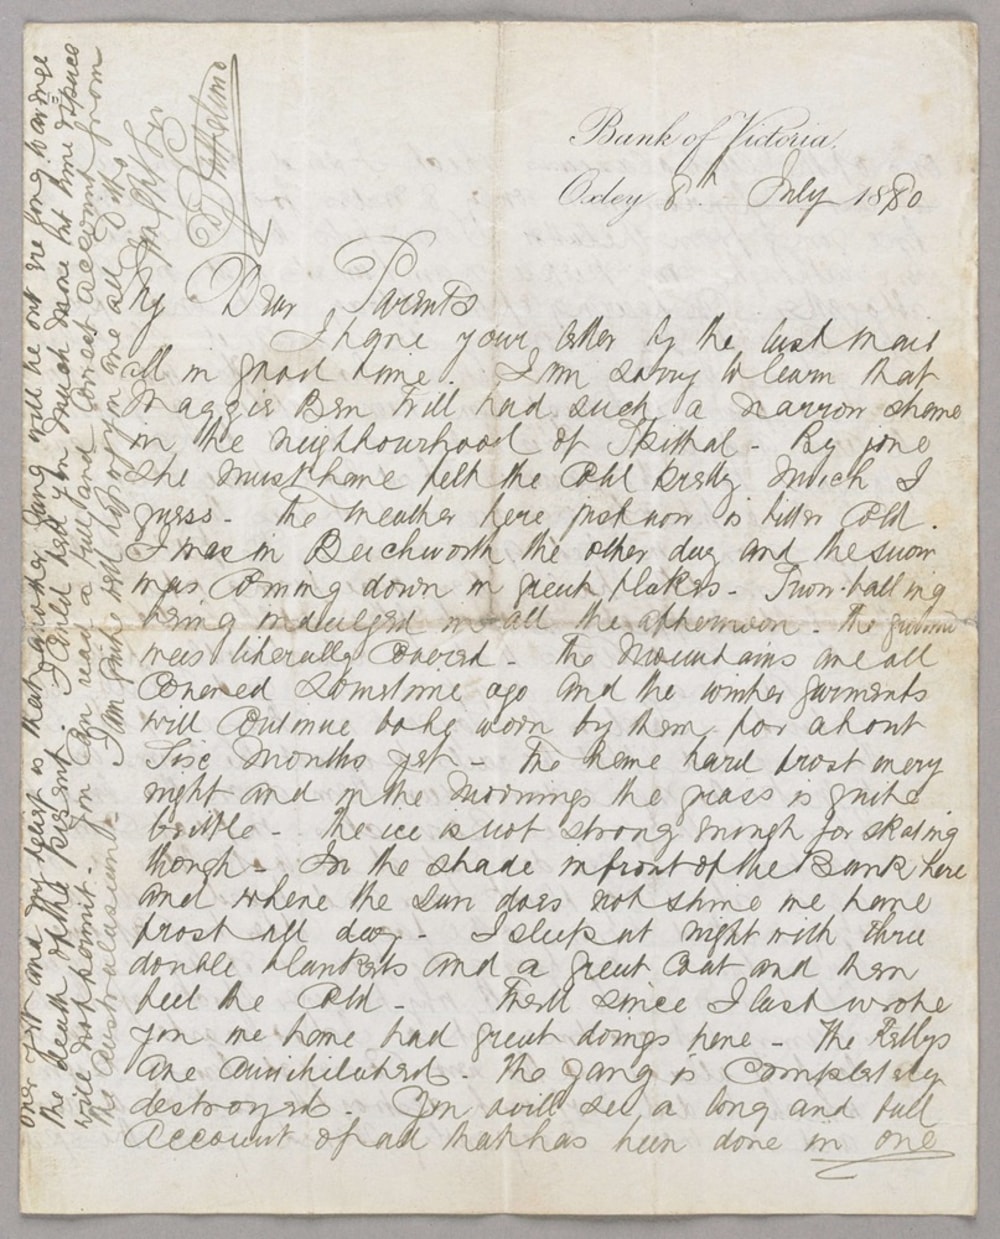 Bank of Victoria.
Oxley 8th July 1880
My Dear Parents
I have your letter by the last mail
all in good time. I am sorry to learn that
Maggie Ben Will had such a narrow shave
in the neighbourhood of Spittal - By jove
she must have felt the cold pretty much I
guess - The weather here just now is bitter cold.
I was in Beechworth the other day and the snow
was coming down in great flakes - Snow-balling
being indulged in all the afternoon - the ground
was literally covered - The Mountains are all
covered sometime ago and the winter garments
will continue to be worn by them for about
Six Months yet - We have hard frost every
night and in the Mornings the grass is quite
brittle - the ice is not strong enough for skating
though - In the shade in front of the Bank here
and where the sun does not shine we have
frost all day - I sleep at night with three
double blankets and a great coat and then
feel the cold - Well since I last wrote
you we have had great doings here - The Kellys
are annihilated - The gang is completely
destroyed - You will see a long and full
account of all that has been done in one
and my fear is that another gang will be out are long to avenge
the death of the present. I could tell you much more but time & space
will not permit - You can read a full and correct account from
the Australasian - I am quite well hope you are all Ditto